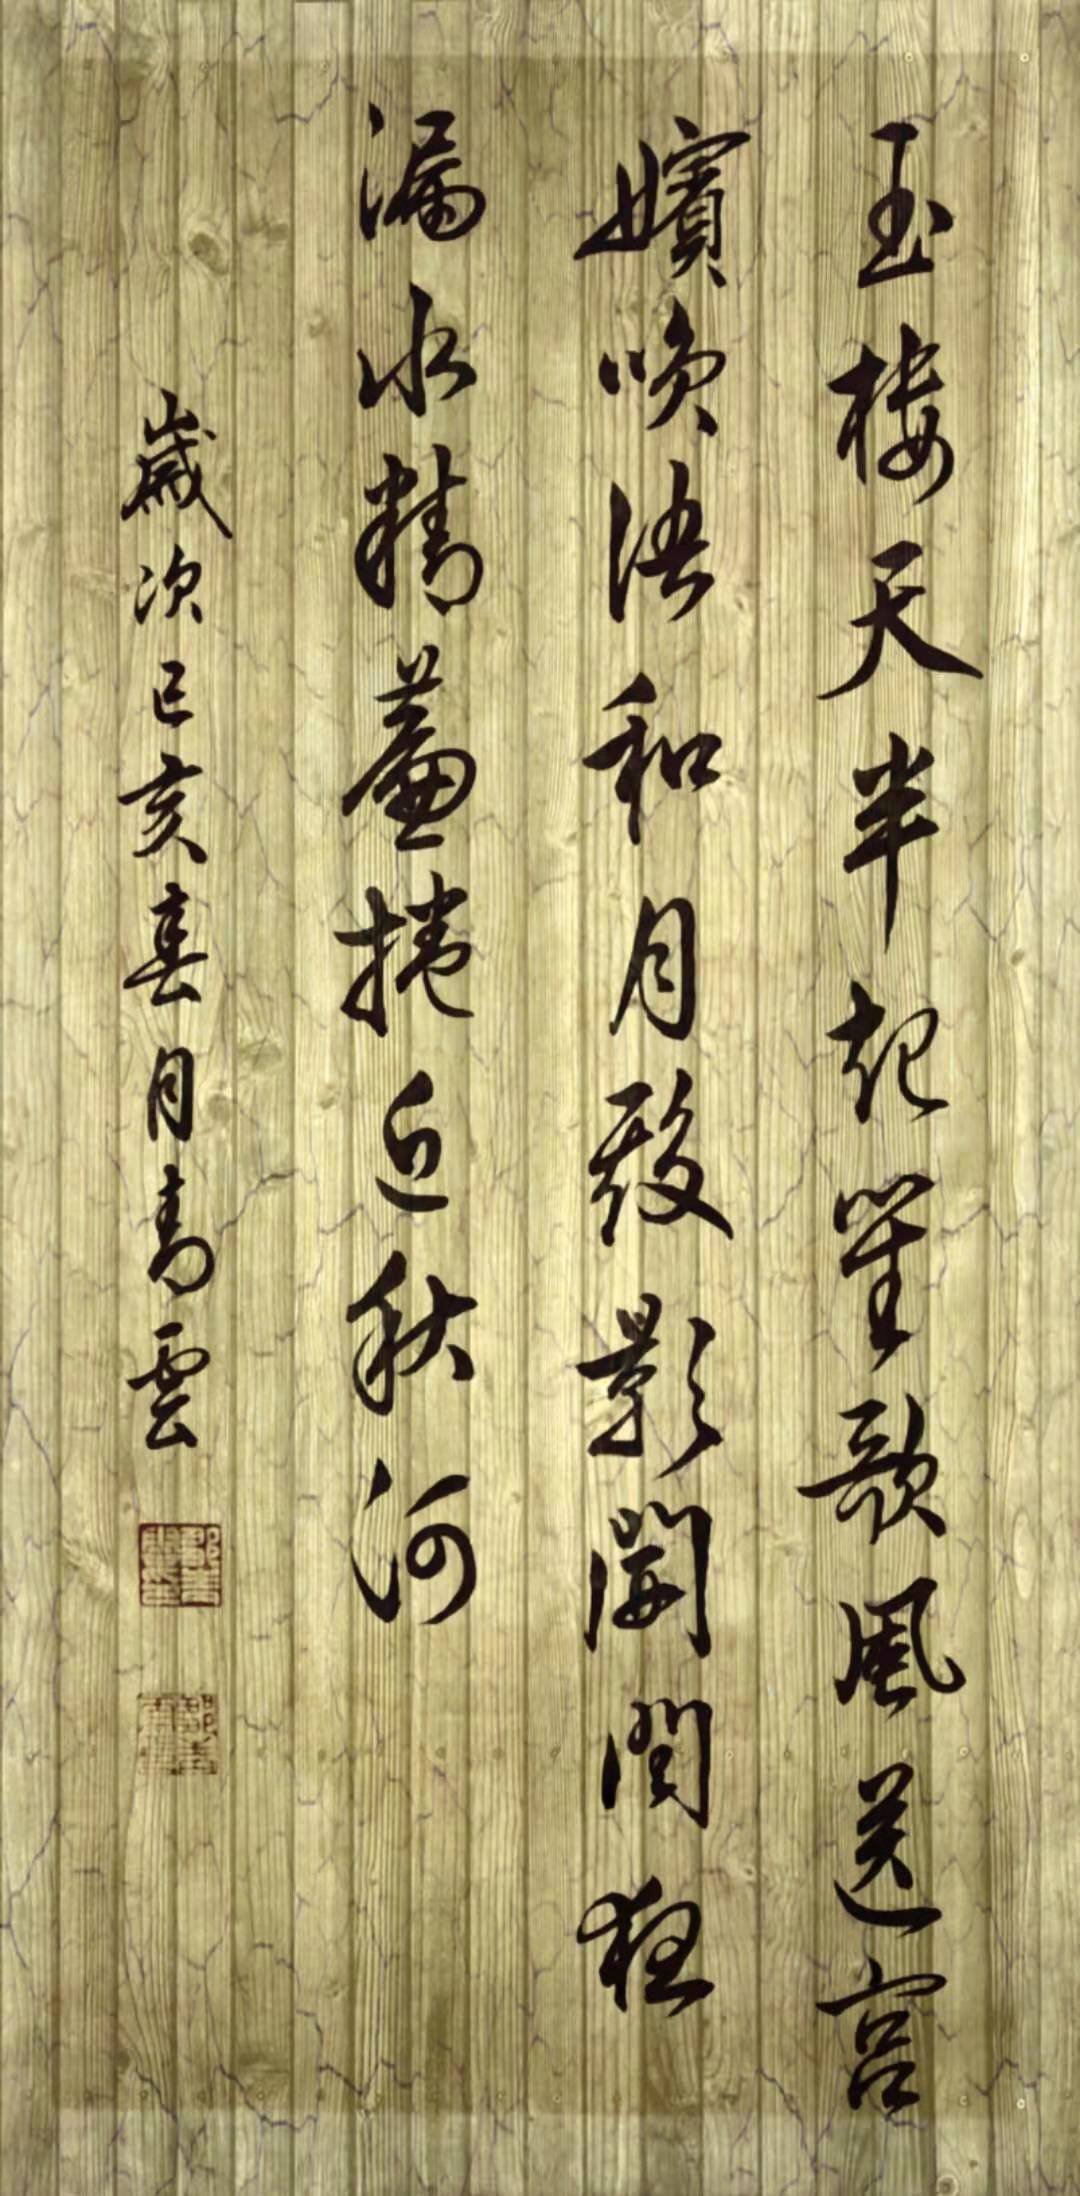 玉樓天半起笙歌風送宮
嬪咲語和月殿影開聞夜
漏水精簾捲近秋河
歲次己亥春月青雲